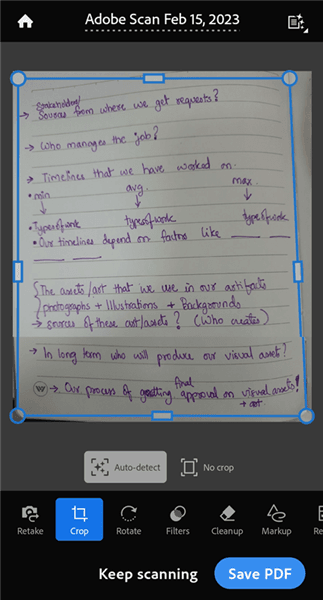 Adobe Scan Feb 15, 2023
Stakeholders/
→ Sources from where we get requests?
→ Who manages the job?
→ Timelines that we have worked on.
• min avg. max.
• Types of work types of work types of work
• Our timelines depend on factors like ____ ____
____ ____
{ The assets/art that we use in our artifacts
photographs + Illustrations + Backgrounds
→ sources of these art/assets? (Who creates)
→ In long term who will produce our visual assets?
final
W → Our process of getting approval on visual assets?
→ art
Auto-detect No crop
Retake Crop Rotate Filters Cleanup Markup Re
Keep scanning Save PDF